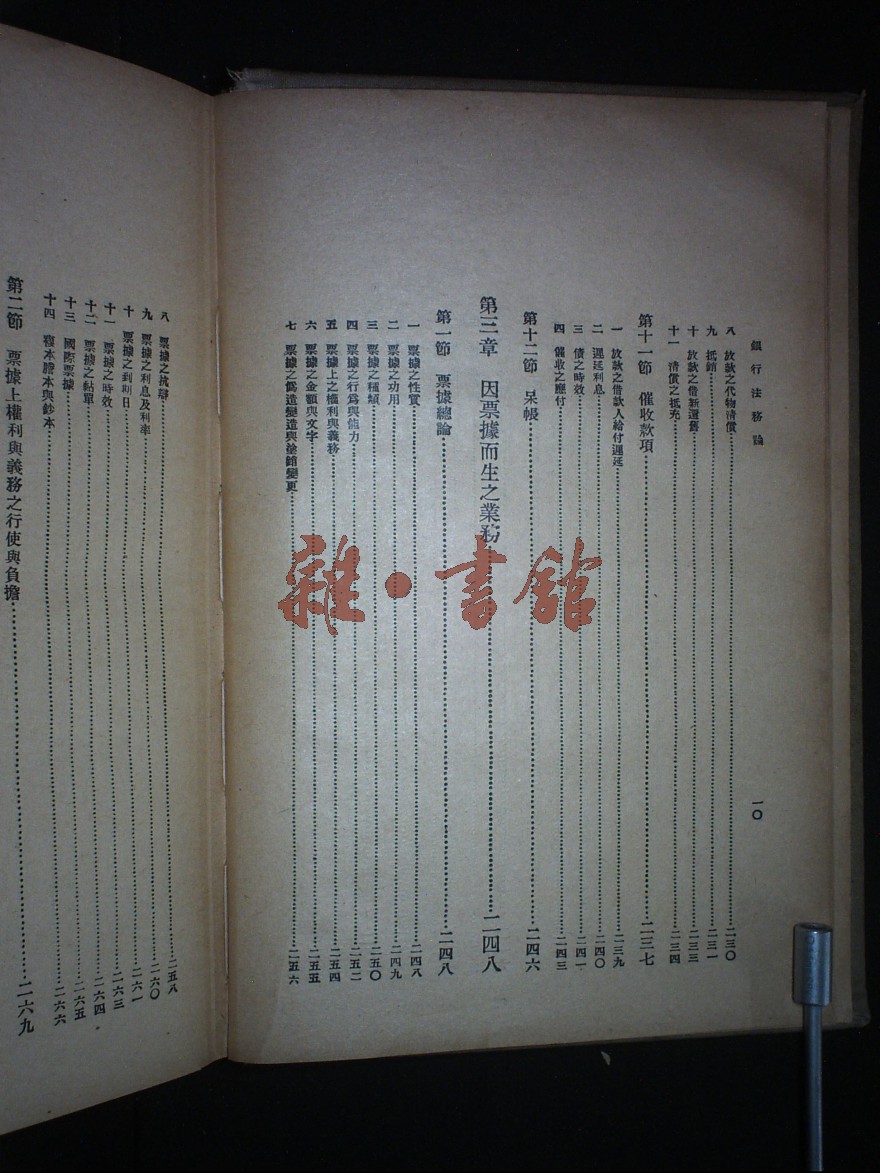 銀行法務論
一〇
八 放款之代物清償……二三〇
九 抵銷……二三一
十 放款之借新還舊……二三三
十一 清償之抵充……二三四
第十一節 催收款項……二三七
一 放款之借款人給付遲延……二三九
二 遲延利息……二四〇
三 債之時效……二四一
四 催收之應付……二四三
第十二節 呆帳……二四六
第三章 因票據而生之業務……二四八
第一節 票據總論……二四八
一 票據之性質……二四八
二 票據之功用……二四九
三 票據之種類……二五〇
四 票據之行爲與能力……二五二
五 票據上之權利與義務……二五四
六 票據之金額與文字……二五五
七 票據之僞造變造與塗銷變更……二五六
八 票據之抗辯……二五八
九 票據之利息及利率……二六〇
十 票據之到期日……二六一
十一 票據之時效……二六三
十二 票據之黏單……二六四
十三 國際票據……二六五
十四 複本謄本與鈔本……二六六
第二節 票據上權利與義務之行使與負擔……二六九
雜·書館